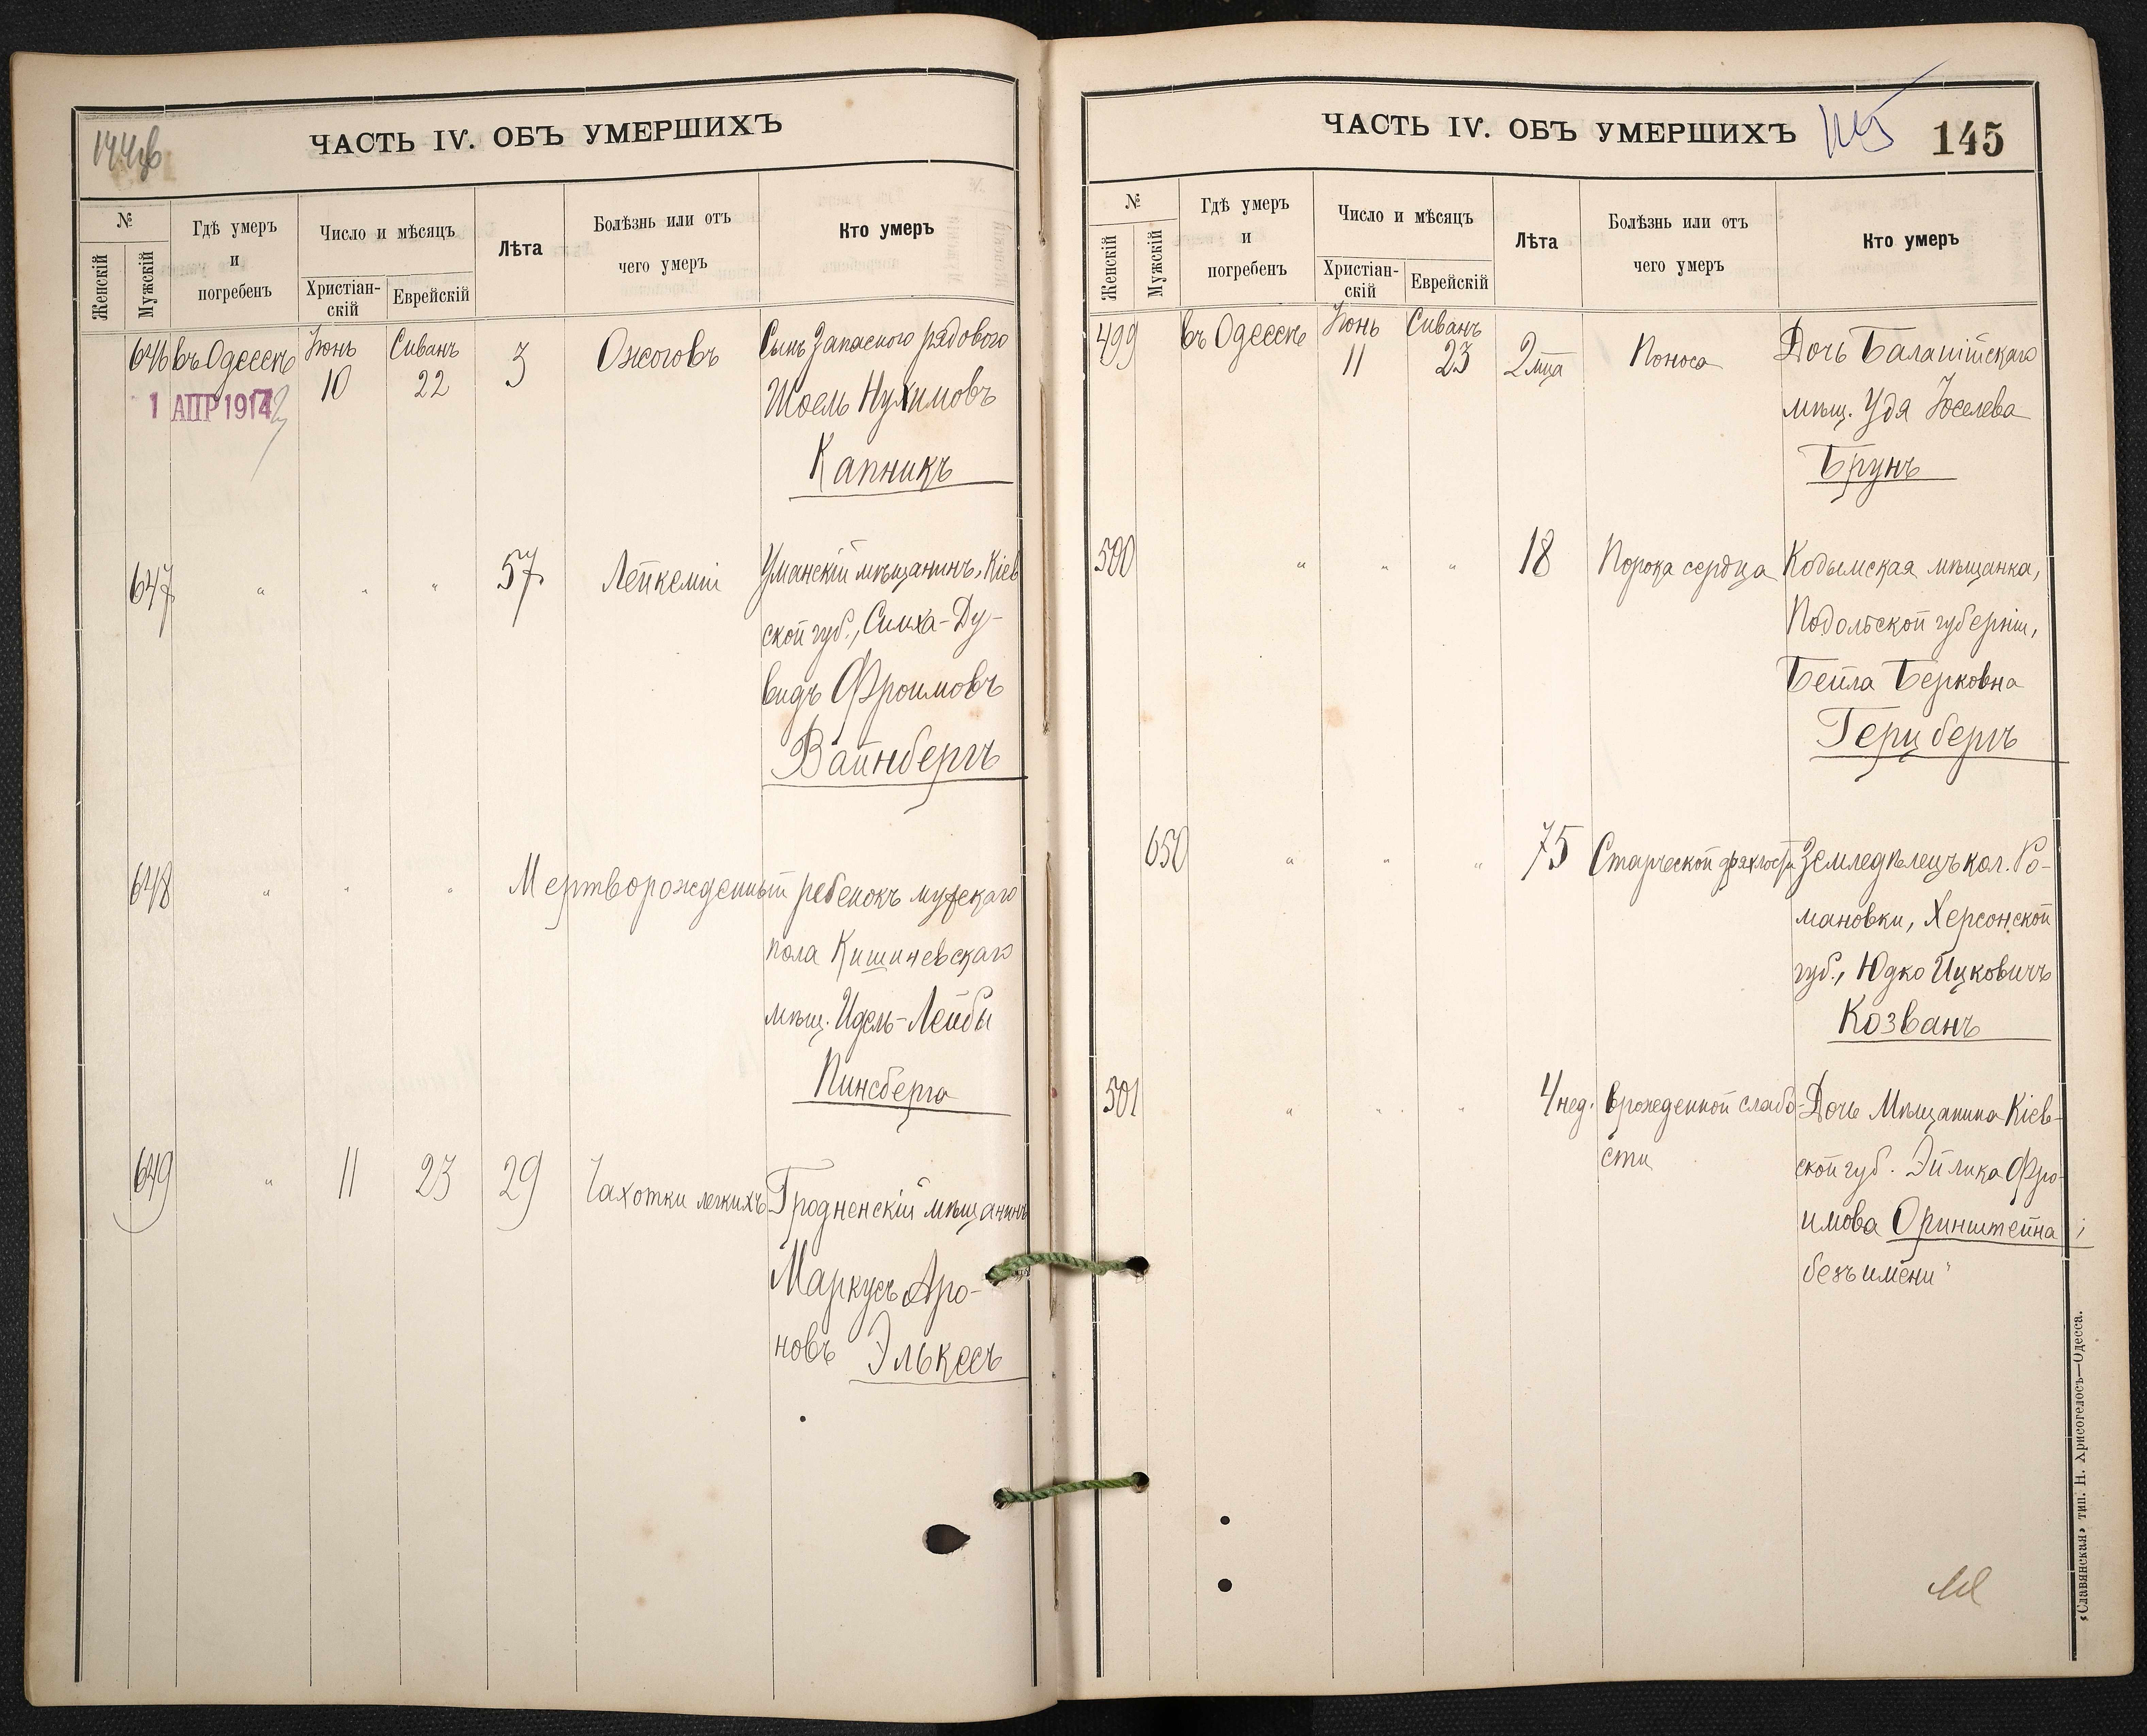 144об
ЧАСТЬ IV. ОБЪ УМЕРШИХЪ
№
Женскій
Мужскій
Гдѣ умеръ
и
погребенъ
Число и мѣсяцъ
Христіан-
скій
Еврейскій
Лѣта
Болѣзнь или отъ
чего умеръ
Кто умеръ
646 въ Одессѣ Іюнь 10 Сиванъ 22 3 Ожоговъ Сынъ Запасного рядового
Шоель Нухимовъ
Капникъ
1 АПР 1914
647 " " " 57 Лейкеміи Уманскій мѣщанинъ, Кіев
ской губ., Симха-Ду-
видъ Фроимовъ
Вайнбергъ
648 " " " Мертворожденный ребенокъ мужскаго
пола Кишиневскаго
мѣщ. Идель-Лейбы
Пинсберга
649 " 11 23 29 Чахотки легкихъ Гродненскій мѣщанинъ
Маркусъ Аро-
новъ Элькесъ
ЧАСТЬ IV. ОБЪ УМЕРШИХЪ
145
145
№
Женскій
Мужскій
Гдѣ умеръ
и
погребенъ
Число и мѣсяцъ
Христіан-
скій
Еврейскій
Лѣта
Болѣзнь или отъ
чего умеръ
Кто умеръ
499 въ Одессѣ Іюнь 11 Сиванъ 23 2 мца Поноса Дочь Балатскаго
мѣщ. Удя Іоселева
Брунъ
500 " " " 18 Порока сердца Кодымская мѣщанка,
Подольской губерніи,
Бейла Берковна
Герцбергъ
650 " " " 75 Старческой дряхлости Земледѣлецъ кол. Ро-
мановки, Херсонской
губ., Юдко Ицковичъ
Козванъ
501 " " " 4 нед. Врожденной слабо- Дочь Мѣщанина Кіев-
сти ской губ. Эйлика Фро-
имова Оринштейна;
"безъ имени"
«Славянская» тип. Н. Хрисогелосъ—Одесса.